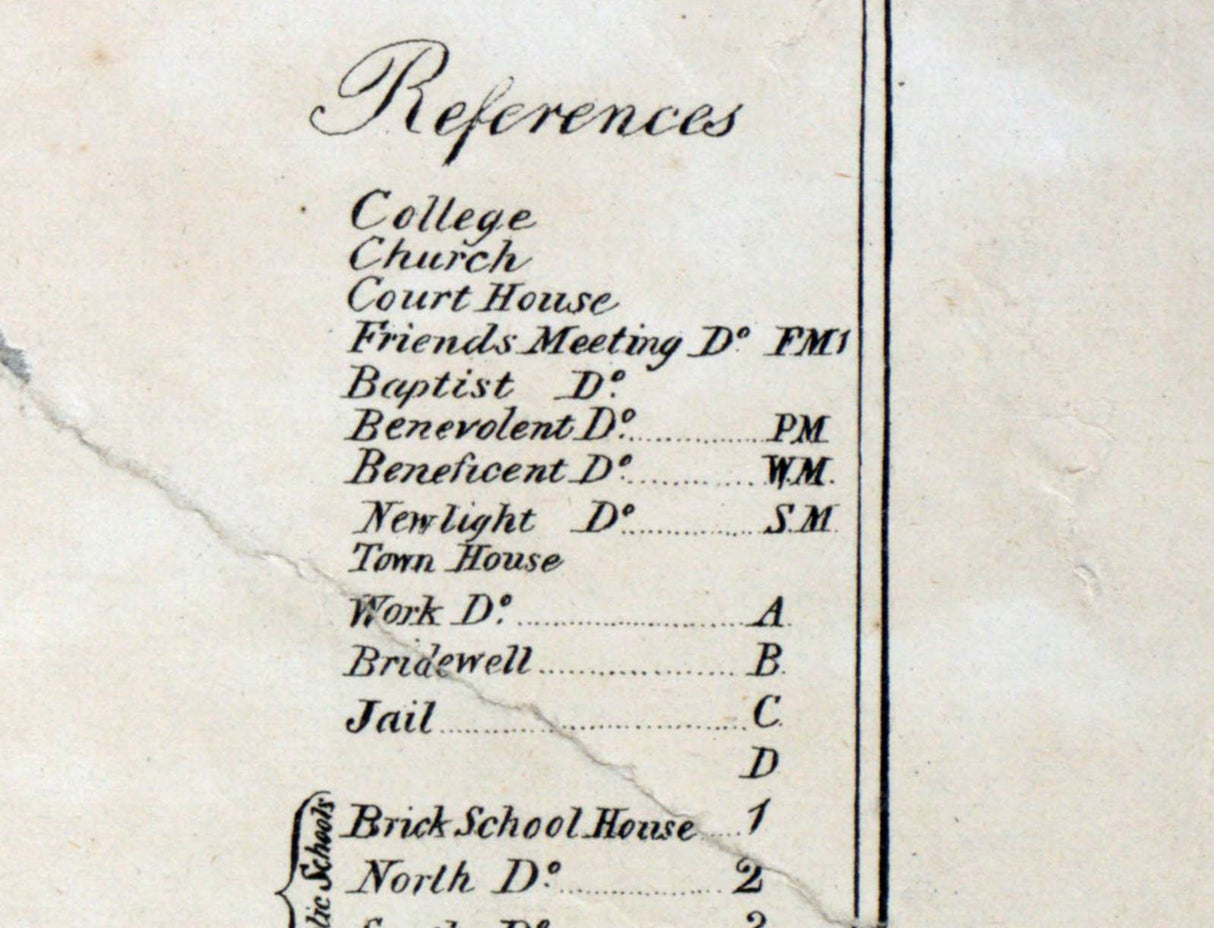 References
College
Church
Court House
Friends Meeting Dº FM1
Baptist Dº
Benevolent Dº PM
Beneficent Dº W.M.
Newlight Dº S.M
Town House
Work Dº A
Bridewell B
Jail C
D
Brick School House 1
North Dº 2
Schools